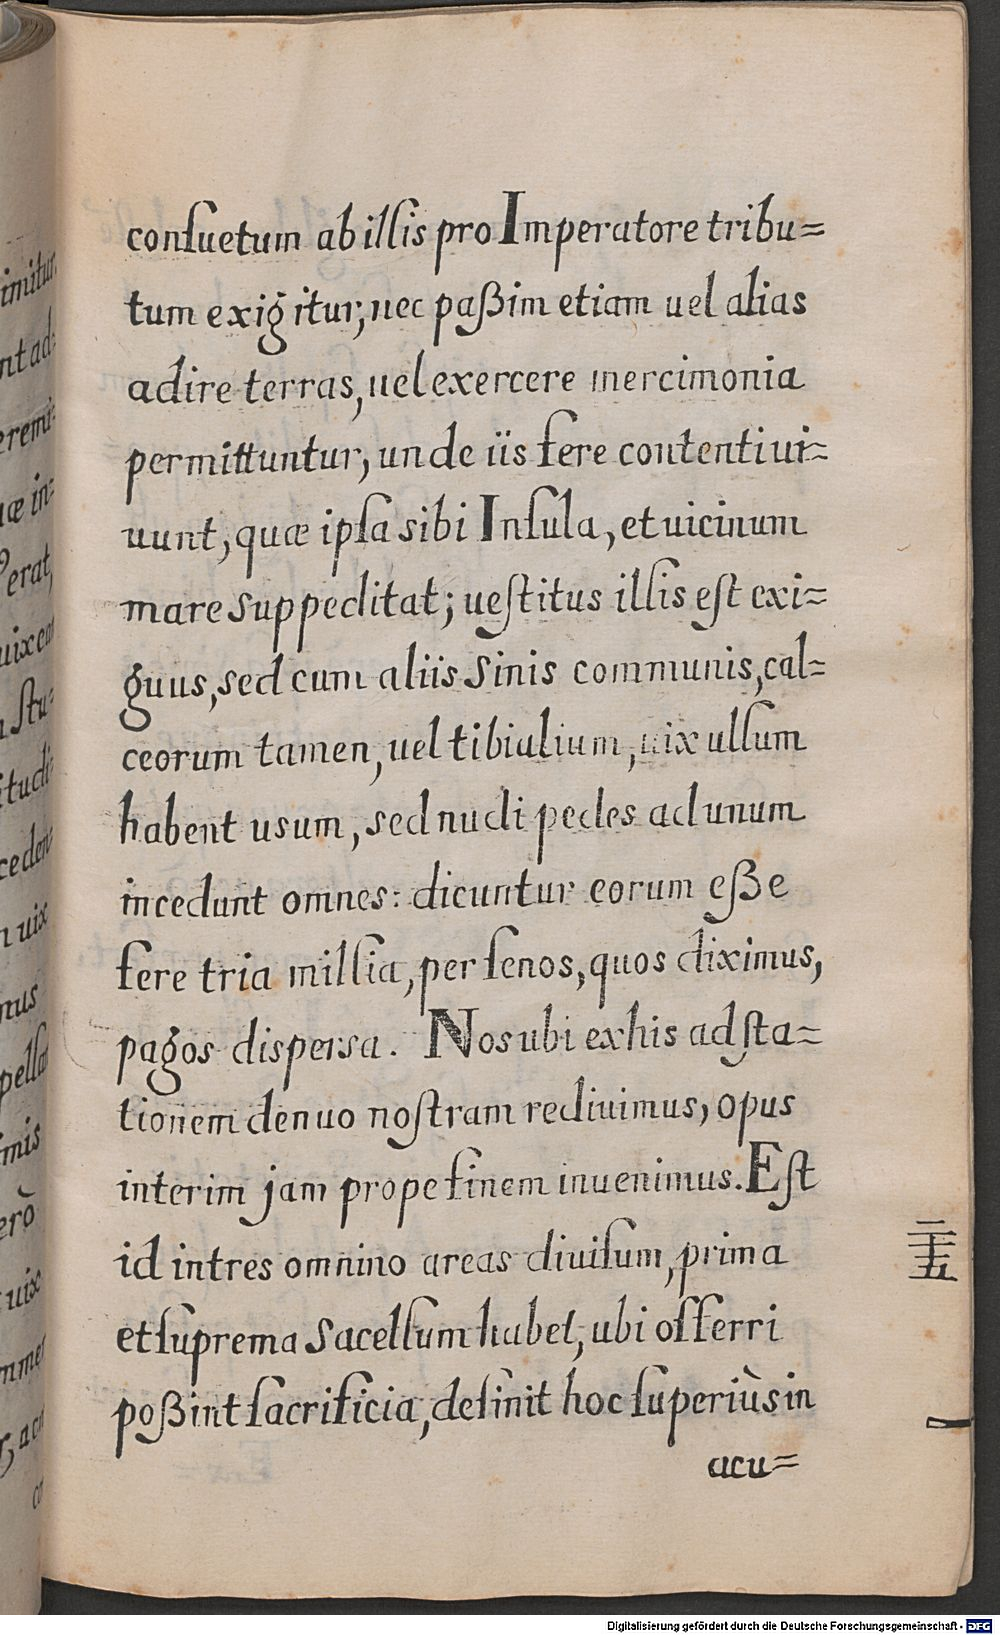 imitur,
nt ad=
eremi=
uæ in=
erat,
uix ea
ſtu=
itudi
ceden
n uix
nus
pellat
imis
erò
uix
mmer
r, acu
co
conſuetum ab illis pro Imperatore tribu=
tum exigitur, nec paßim etiam uel alias
adire terras, uel exercere mercimonia
permittuntur, unde iis fere contenti ui=
uunt, quæ ipſa sibi Inſula, et uicinum
mare suppeditat; ueſtitus illis eſt exi=
guus, sed cum aliis Sinis communis, cal=
ceorum tamen, uel tibialium, uix ullum
habent usum, sed nudi pedes ad unum
incedunt omnes: dicuntur eorum eße
fere tria millia, per ſenos, quos diximus,
pagos dispersa. Nos ubi ex his ad ſta=
tionem denuo noſtram rediuimus, opus
interim jam prope finem inuenimus. Eſt
id in tres omnino areas diuiſum, prima
et ſuprema Sacellum habet, ubi offerri
poßint ſacrificia, deſinit hoc ſuperiùs in
acu=
二十五
Digitalisierung gefördert durch die Deutsche Forschungsgemeinschaft - DFG